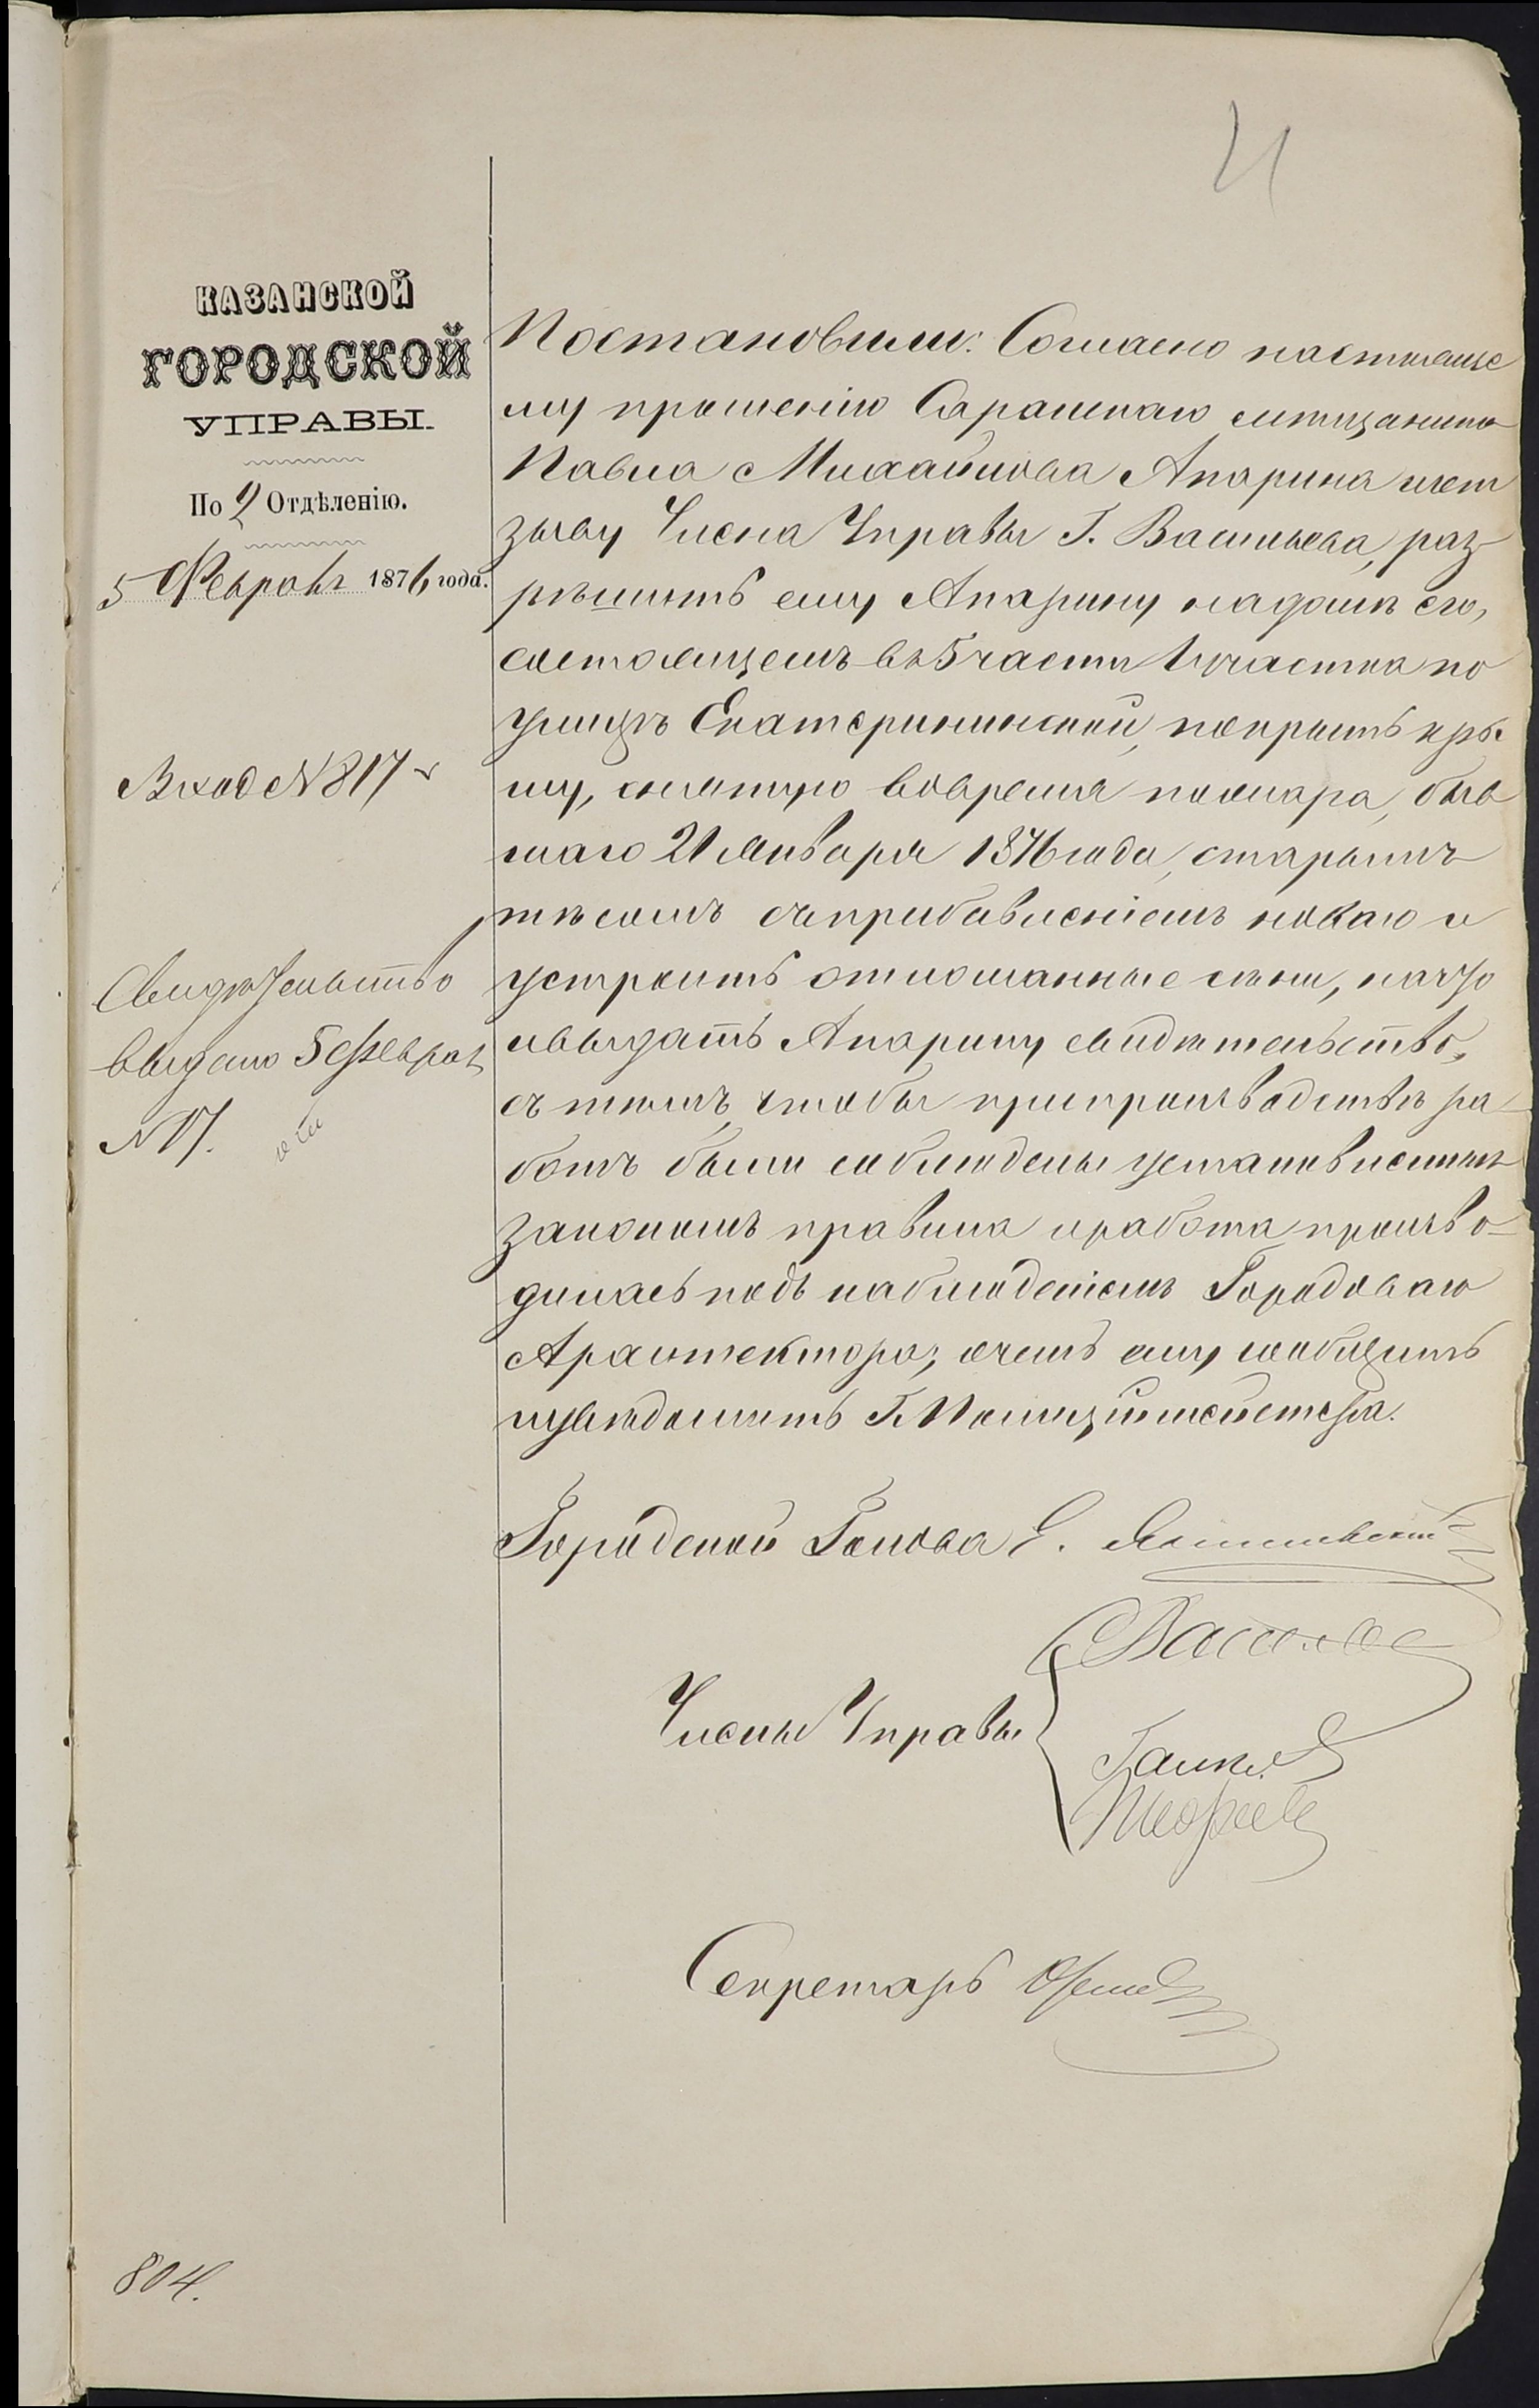 КАЗАНСКОЙ
ГОРОДСКОЙ
УПРАВЫ.
По 2 Отдѣленію.
5 Февраля 1876 года.
Вход N 817
Свидѣтельство
выдано 5 Феврал
N 17.
804.
Постановили: Согласно настояще
му прошенію Сарапскаго мѣщанина
Павла Михайлова Апарина и от
зыву Члена Управы Г. Васильева, раз
рѣшить ему Апарину на домѣ его,
состоящемъ въ 5 части 1 участка по
улицѣ Екатерининской, покрыть кры
шу, снятую вовремя пожара, быв
шаго 21 Января 1876 года, старымъ
тесомъ съ прибавленіемъ новаго и
устроить отломанные сѣни, на что
и выдать Апарину свидѣтельство,
съ тѣмъ, чтобы при производствѣ ра-
ботъ были соблюдены установленныя
закономъ правила и работа произво-
дилась подъ наблюденіемъ Городоваго
Архитектора, о чемъ ему сообщить
и увѣдомить Г. Полиціймейстера.
Городской Голова Е. Янишевскій
Члены Управы
СВасильев
Секретарь